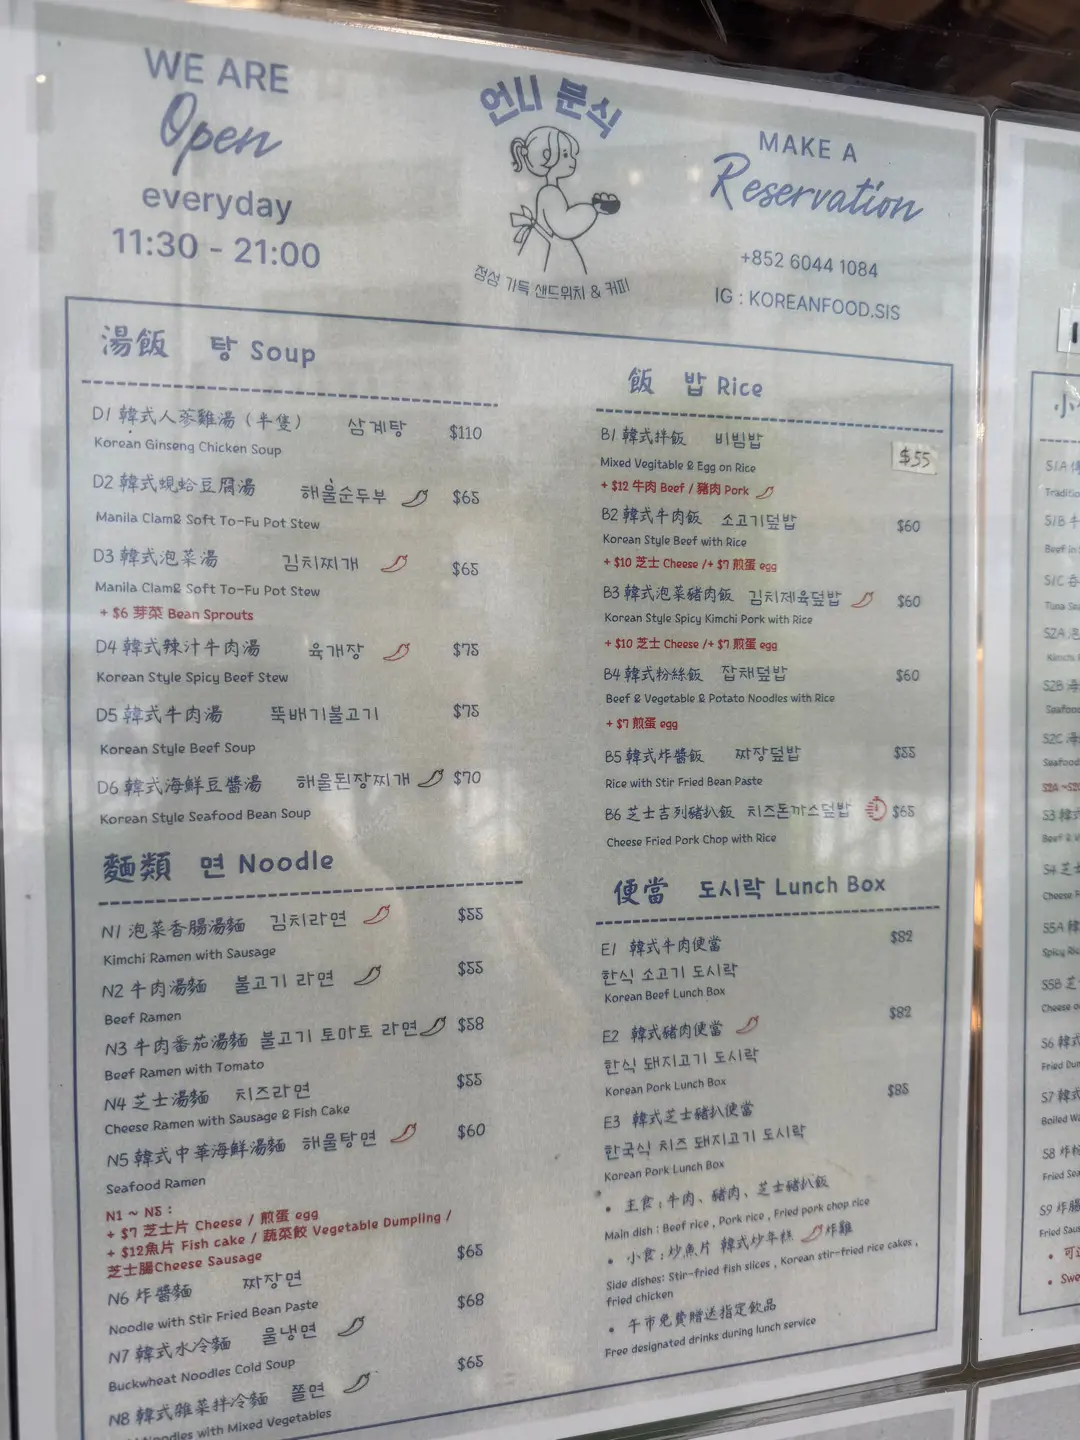 WE ARE
Open
everyday
11:30 - 21:00
언니 분식
정성 가득 샌드위치 & 커피
MAKE A
Reservation
+852 6044 1084
IG : KOREANFOOD.SIS
湯飯 탕 Soup
D1 韓式人蔘雞湯（半隻） 삼계탕 $110
Korean Ginseng Chicken Soup
D2 韓式蜆蛤豆腐湯 해물순두부 $65
Manila Clam& Soft To-Fu Pot Stew
D3 韓式泡菜湯 김치찌개 $65
Manila Clam& Soft To-Fu Pot Stew
+ $6 芽菜 Bean Sprouts
D4 韓式辣汁牛肉湯 육개장 $75
Korean Style Spicy Beef Stew
D5 韓式牛肉湯 뚝배기불고기 $75
Korean Style Beef Soup
D6 韓式海鮮豆醬湯 해물된장찌개 $70
Korean Style Seafood Bean Soup
麵類 면 Noodle
N1 泡菜香腸湯麵 김치라면 $55
Kimchi Ramen with Sausage
N2 牛肉湯麵 불고기 라면 $55
Beef Ramen
N3 牛肉番茄湯麵 불고기 토마토 라면 $58
Beef Ramen with Tomato
N4 芝士湯麵 치즈라면 $55
Cheese Ramen with Sausage & Fish Cake
N5 韓式中華海鮮湯麵 해물탕면 $60
Seafood Ramen
N1 ~ N5 :
+ $7 芝士片 Cheese / 煎蛋 egg
+ $12魚片 Fish cake / 蔬菜餃 Vegetable Dumpling /
芝士腸Cheese Sausage
N6 炸醬麵 짜장면 $65
Noodle with Stir Fried Bean Paste
N7 韓式水冷麵 물냉면 $68
Buckwheat Noodles Cold Soup
N8 韓式雜菜拌冷麵 쫄면 $65
Noodles with Mixed Vegetables
飯 밥 Rice
B1 韓式拌飯 비빔밥 $55
Mixed Vegitable & Egg on Rice
+ $12 牛肉 Beef / 豬肉 Pork
B2 韓式牛肉飯 소고기덮밥 $60
Korean Style Beef with Rice
+ $10 芝士 Cheese /+ $7 煎蛋 egg
B3 韓式泡菜豬肉飯 김치제육덮밥 $60
Korean Style Spicy Kimchi Pork with Rice
+ $10 芝士 Cheese /+ $7 煎蛋 egg
B4 韓式粉絲飯 잡채덮밥 $60
Beef & Vegetable & Potato Noodles with Rice
+ $7 煎蛋 egg
B5 韓式炸醬飯 짜장덮밥 $55
Rice with Stir Fried Bean Paste
B6 芝士吉列豬扒飯 치즈돈까스덮밥 $65
Cheese Fried Pork Chop with Rice
便當 도시락 Lunch Box
E1 韓式牛肉便當 $82
한식 소고기 도시락
Korean Beef Lunch Box
E2 韓式豬肉便當 $82
한식 돼지고기 도시락
Korean Pork Lunch Box
E3 韓式芝士豬扒便當 $85
한국식 치즈 돼지고기 도시락
Korean Pork Lunch Box
• 主食 ; 牛肉、豬肉、芝士豬扒飯
Main dish : Beef rice , Pork rice , Fried pork chop rice
• 小食 ; 炒魚片 韓式炒年糕 炸雞
Side dishes: Stir-fried fish slices , Korean stir-fried rice cakes ,
fried chicken
• 午市免費贈送指定飲品
Free designated drinks during lunch service
S1A
S1B 牛
Beef in
S1C
Tuna
S2A
Kimchi
S2B 海
Seafood
S2C 海
Seafood
S3 韓式
Beef &
S4 芝士
Cheese
S5A 韓
Spicy
S5B 芝
Cheese
S6 韓式
Fried
S7 韓式
Boiled
S8 炸粉
Fried
S9 炸腸
Fried
• 可